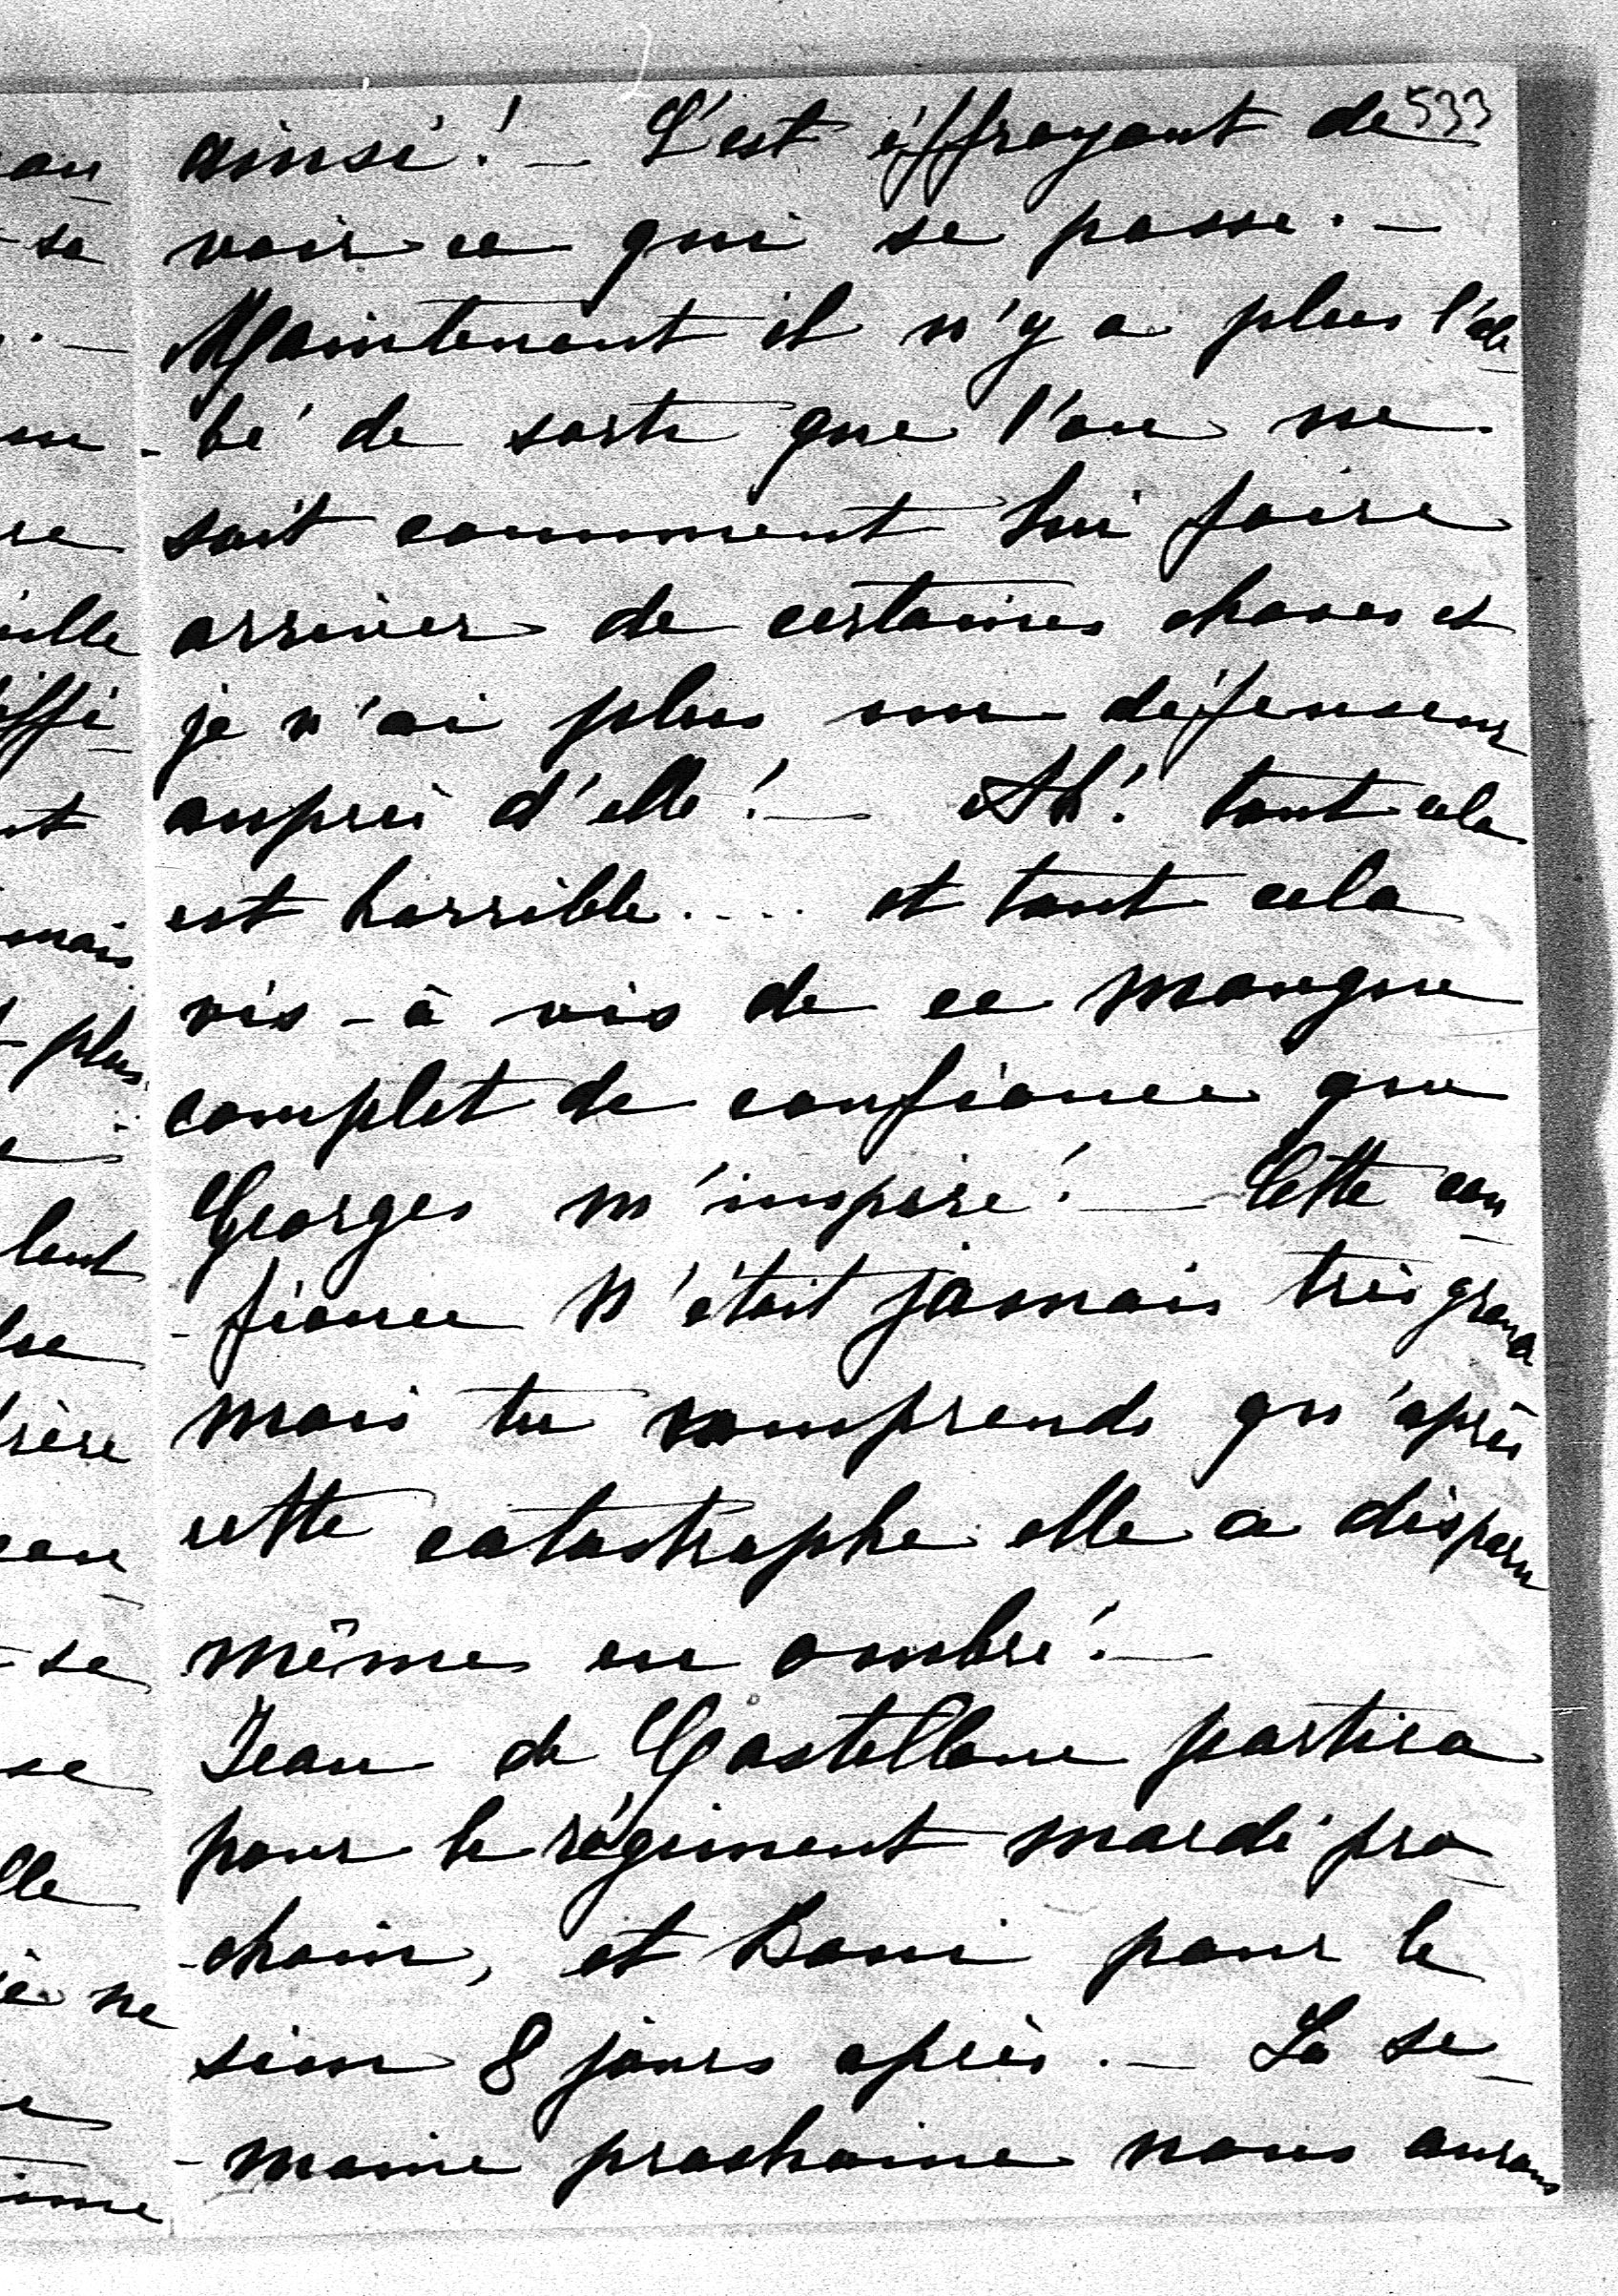 533
ainsi! – C'est éffrayant de
voir ce qui se passe. –
Maintenant il n'y a plus l'ab-
-bé de sorte que l'on ne
sait comment lui faire
arriver de certaines choses et
je n'ai plus un défenseur
auprès d'elle! – Ah! tout cela
est horrible.... et tout cela
vis-à vis de ce manque
complet de confiance que
Georges m'inspire! – Cette con-
-fiance n'était jamais très grand
mais tu comprends qu'après
cette catastrophe elle a disparu
même en ombre! –
Jean de Castellane partira
pour le régiment mardi pro-
-chain, et Boni pour le
sien 8 jours après. – La se-
-maine prochaine nous aurons